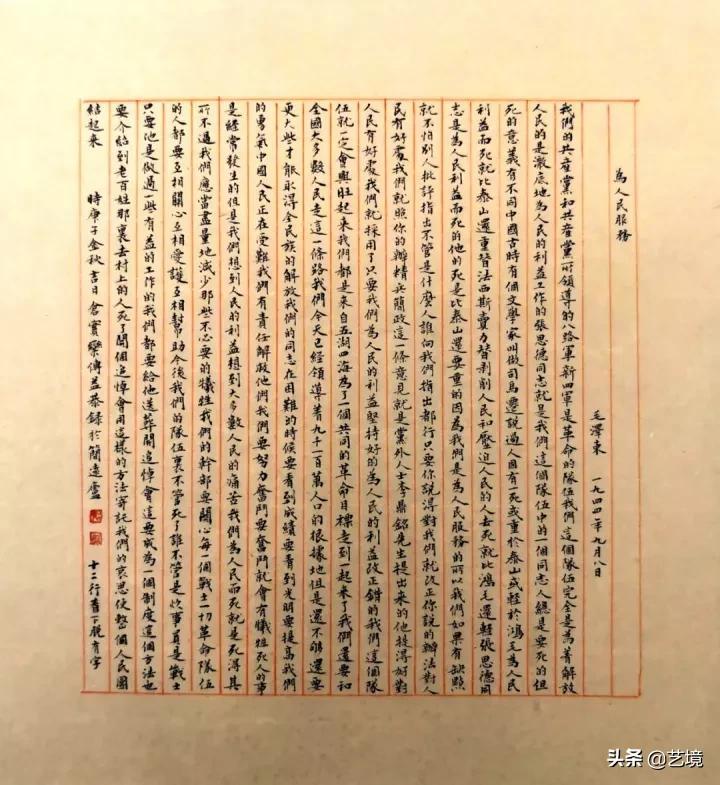 為人民服務
毛澤東 一九四四年九月八日
我們的共產黨和共產黨所領導的八路軍新四軍是革命的隊伍我們這個隊伍完全是為着解放
人民的是澈底地為人民的利益工作的張思德同志就是我們這個隊伍中的一個同志人總是要死的但
死的意義有不同中國古時有個文學家叫做司馬遷說過人固有死或重於泰山或輕於鴻毛為人民
利益而死就比泰山還重替法西斯賣力替剝削人民和壓迫人民的人去死就比鴻毛還輕張思德同
志是為人民利益而死的他的死是比泰山還要重的因為我們是為人民服務的所以我們如果有缺點
就不怕別人批評指出不管是什麼人誰向我們指出都行只要你說得對我們就改正你說的辦法對人
民有好處我們就照你的辦精兵簡政這一條意見就是黨外人士李鼎銘先生提出來的他提得好對
人民有好處我們就採用了只要我們為人民的利益堅持好的為人民的利益改正錯的我們這個隊
伍就一定會興旺起來我們都是來自五湖四海為了一個共同的革命目標走到一起來了我們還要和
全國大多數人民走這一條路我們今天已經領導着九千一百萬人口的根據地但是還不够還要
更大些才能取得全民族的解放我們的同志在困難的時候要看到成績要看到光明要提高我們
的勇氣中國人民正在受難我們有責任解救他們我們要努力奮鬥要奮鬥就會有犧牲死人的事
是經常發生的但是我們想到人民的利益想到大多數人民的痛苦我們為人民而死就是死得其
所不過我們應當盡量地減少那些不必要的犧牲我們的幹部要關心每一個戰士一切革命隊伍
的人都要互相關心互相愛護互相幫助今後我們的隊伍裏不管死了誰不管是炊事員是戰士
只要他是做過一些有益的工作的我們都要給他送葬開追悼會這要成為一個制度這個方法也
要介紹到老百姓那裏去村上的人死了開個追悼會用這樣的方法寄託我們的哀思使整個人民團
結起來 時庚子金秋吉日 倉實樂傅益恭錄於簡遠廬 十二行 下脫有字
头条 @艺境